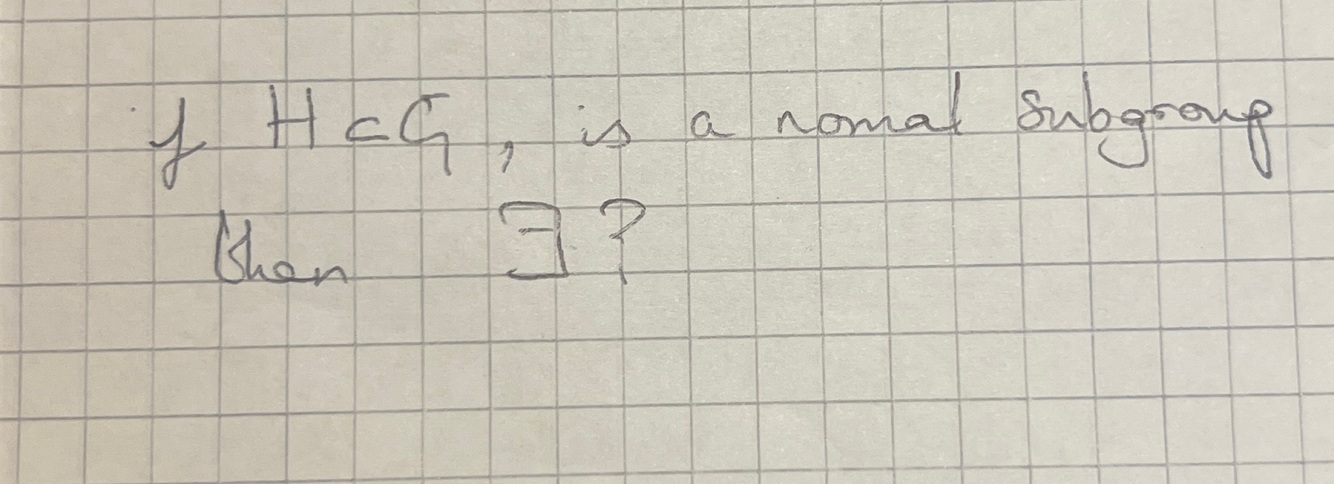 if H ⊂ G, is a nomal subgroup
then ∃?